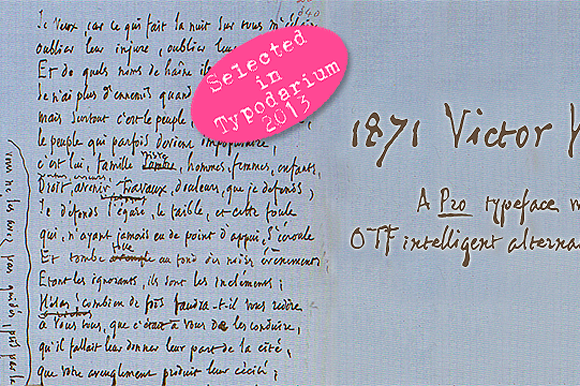 Je veux, car ce qui fait la nuit sur tous m'éclai
oublier leur injure, oublier leur
Et de quels noms de haine ils
Je n'ai plus d'ennemis quand
mais surtout c'est le peuple,
le peuple qui parfois devient impopulaire,
triste
c'est lui, famille sombre, hommes, femmes, enfants,
Droit, avenir, Travaux, douleurs, que je défends ;
Je défends l'égaré, le faible, et cette foule
qui, n'ayant jamais eu de point d'appui, s'écroule
Et tombe au fond des noirs événements
Etant les ignorants, ils sont les incléments ;
Hélas ! combien de fois faudra-t-il vous redire
à vous tous, que c'était à vous de les conduire,
qu'il fallait leur donner leur part de la cité,
que votre aveuglement produit leur cécité ;
Selected
in
Typodarium
2013
1871 Victor
A Pro typeface
OTF intelligent alterna